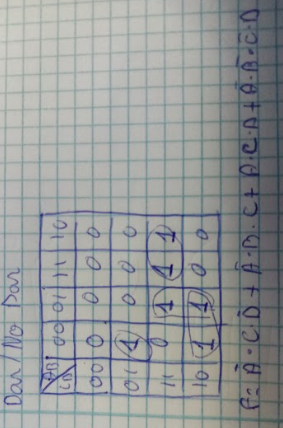 Dar / No Dar
AB 00 01 11 10
CD
00 0 0 0 0
01 1 0 0 0
11 0 1 1 1
10 1 1 0 0
F= Ā·C D̄ + Ā·B·C + A·C·A + Ā·B̄·C̄·D